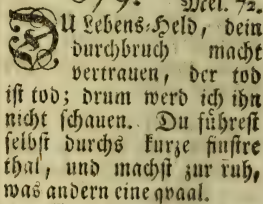 Mel. 72.
DU Lebens-Held, dein
durchbruch macht
vertrauen, der tod
ist tod; drum werd ich ihn
nicht schauen. Du führest
selbst durchs kurze finstre
thal, und machst zur ruh,
was andern eine qvaal.